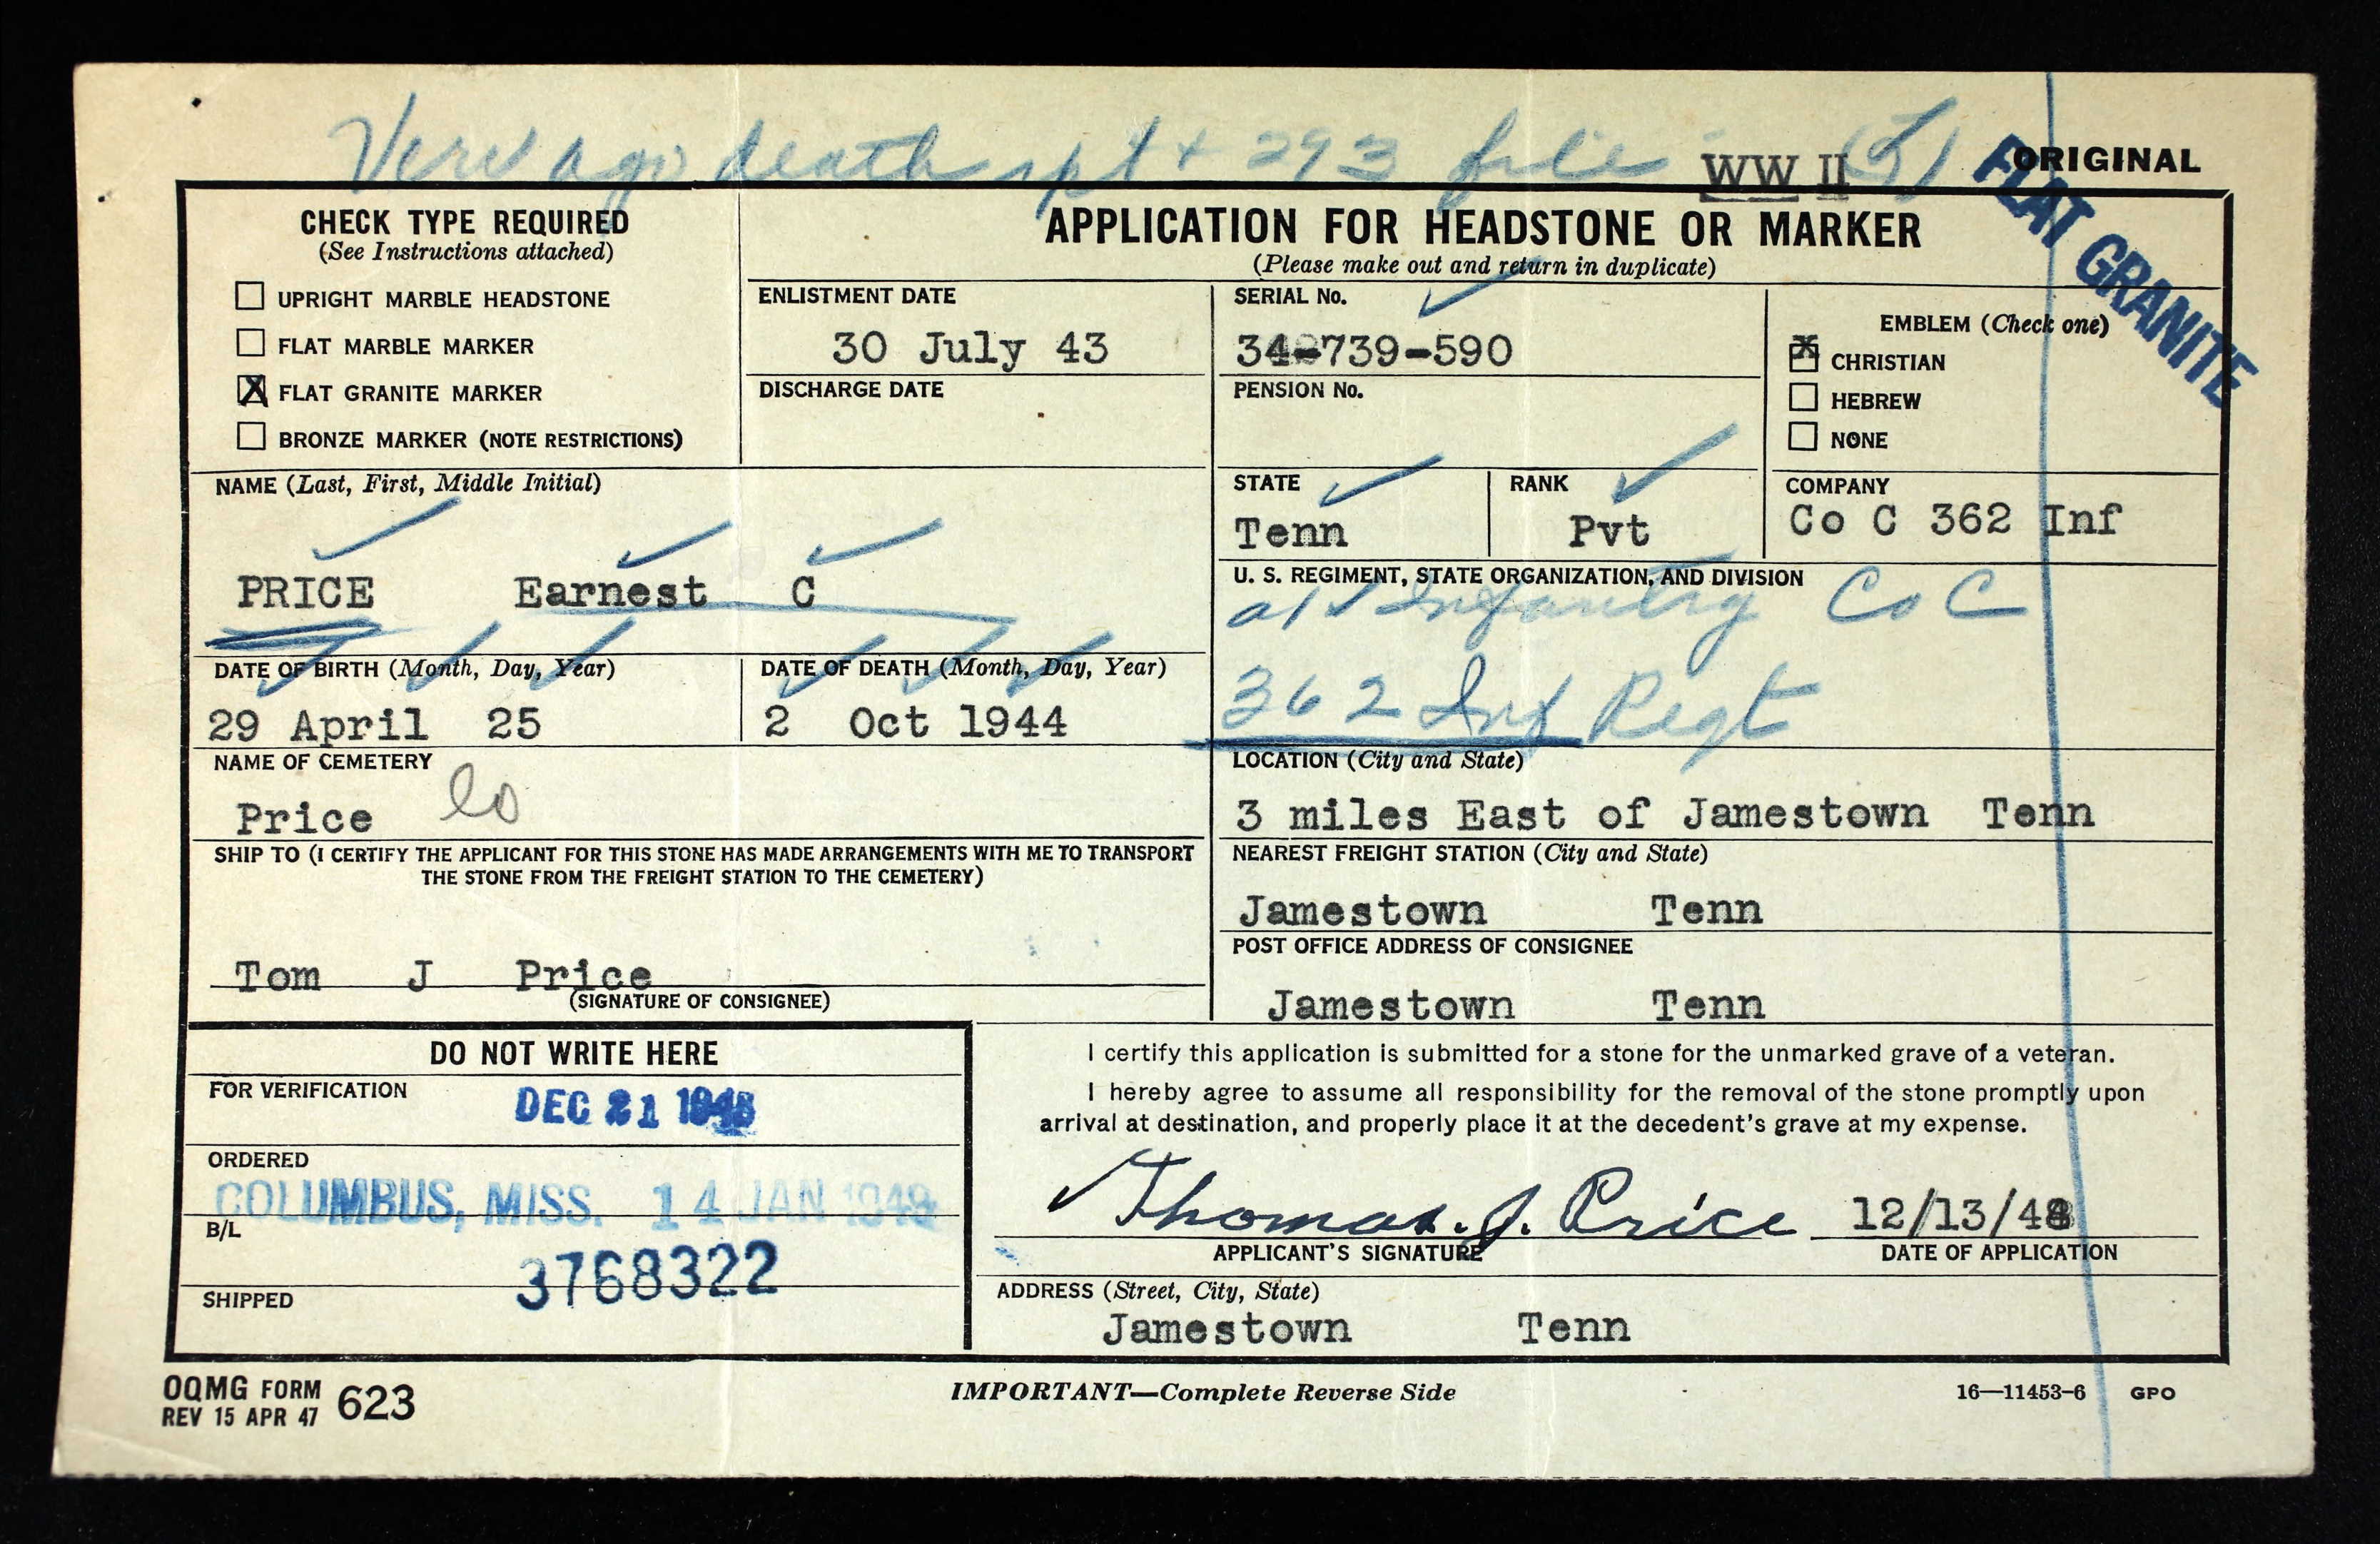 Verd ago death rpt + 293 file WW II (J) ORIGINAL
FLAT GRANITE
CHECK TYPE REQUIRED
(See Instructions attached)
UPRIGHT MARBLE HEADSTONE
FLAT MARBLE MARKER
X FLAT GRANITE MARKER
BRONZE MARKER (NOTE RESTRICTIONS)
APPLICATION FOR HEADSTONE OR MARKER
(Please make out and return in duplicate)
ENLISTMENT DATE
30 July 43
DISCHARGE DATE
SERIAL No.
34-739-590
PENSION No.
EMBLEM (Check one)
X CHRISTIAN
HEBREW
NONE
NAME (Last, First, Middle Initial)
PRICE Earnest C
STATE
Tenn
RANK
Pvt
COMPANY
Co C 362 Inf
U. S. REGIMENT, STATE ORGANIZATION, AND DIVISION
Infantry Co C
362 Inf Regt
DATE OF BIRTH (Month, Day, Year)
29 April 25
DATE OF DEATH (Month, Day, Year)
2 Oct 1944
NAME OF CEMETERY
Price
LOCATION (City and State)
3 miles East of Jamestown Tenn
SHIP TO (I CERTIFY THE APPLICANT FOR THIS STONE HAS MADE ARRANGEMENTS WITH ME TO TRANSPORT
THE STONE FROM THE FREIGHT STATION TO THE CEMETERY)
Tom J Price
(SIGNATURE OF CONSIGNEE)
NEAREST FREIGHT STATION (City and State)
Jamestown Tenn
POST OFFICE ADDRESS OF CONSIGNEE
Jamestown Tenn
DO NOT WRITE HERE
FOR VERIFICATION
DEC 21 1948
ORDERED
COLUMBUS, MISS. 14 JAN 1949
B/L
3768322
SHIPPED
I certify this application is submitted for a stone for the unmarked grave of a veteran.
I hereby agree to assume all responsibility for the removal of the stone promptly upon
arrival at destination, and properly place it at the decedent's grave at my expense.
Thomas. J. Price 12/13/48
APPLICANT'S SIGNATURE DATE OF APPLICATION
ADDRESS (Street, City, State)
Jamestown Tenn
OQMG FORM 623
REV 15 APR 47
IMPORTANT—Complete Reverse Side
16—11453-6 GPO